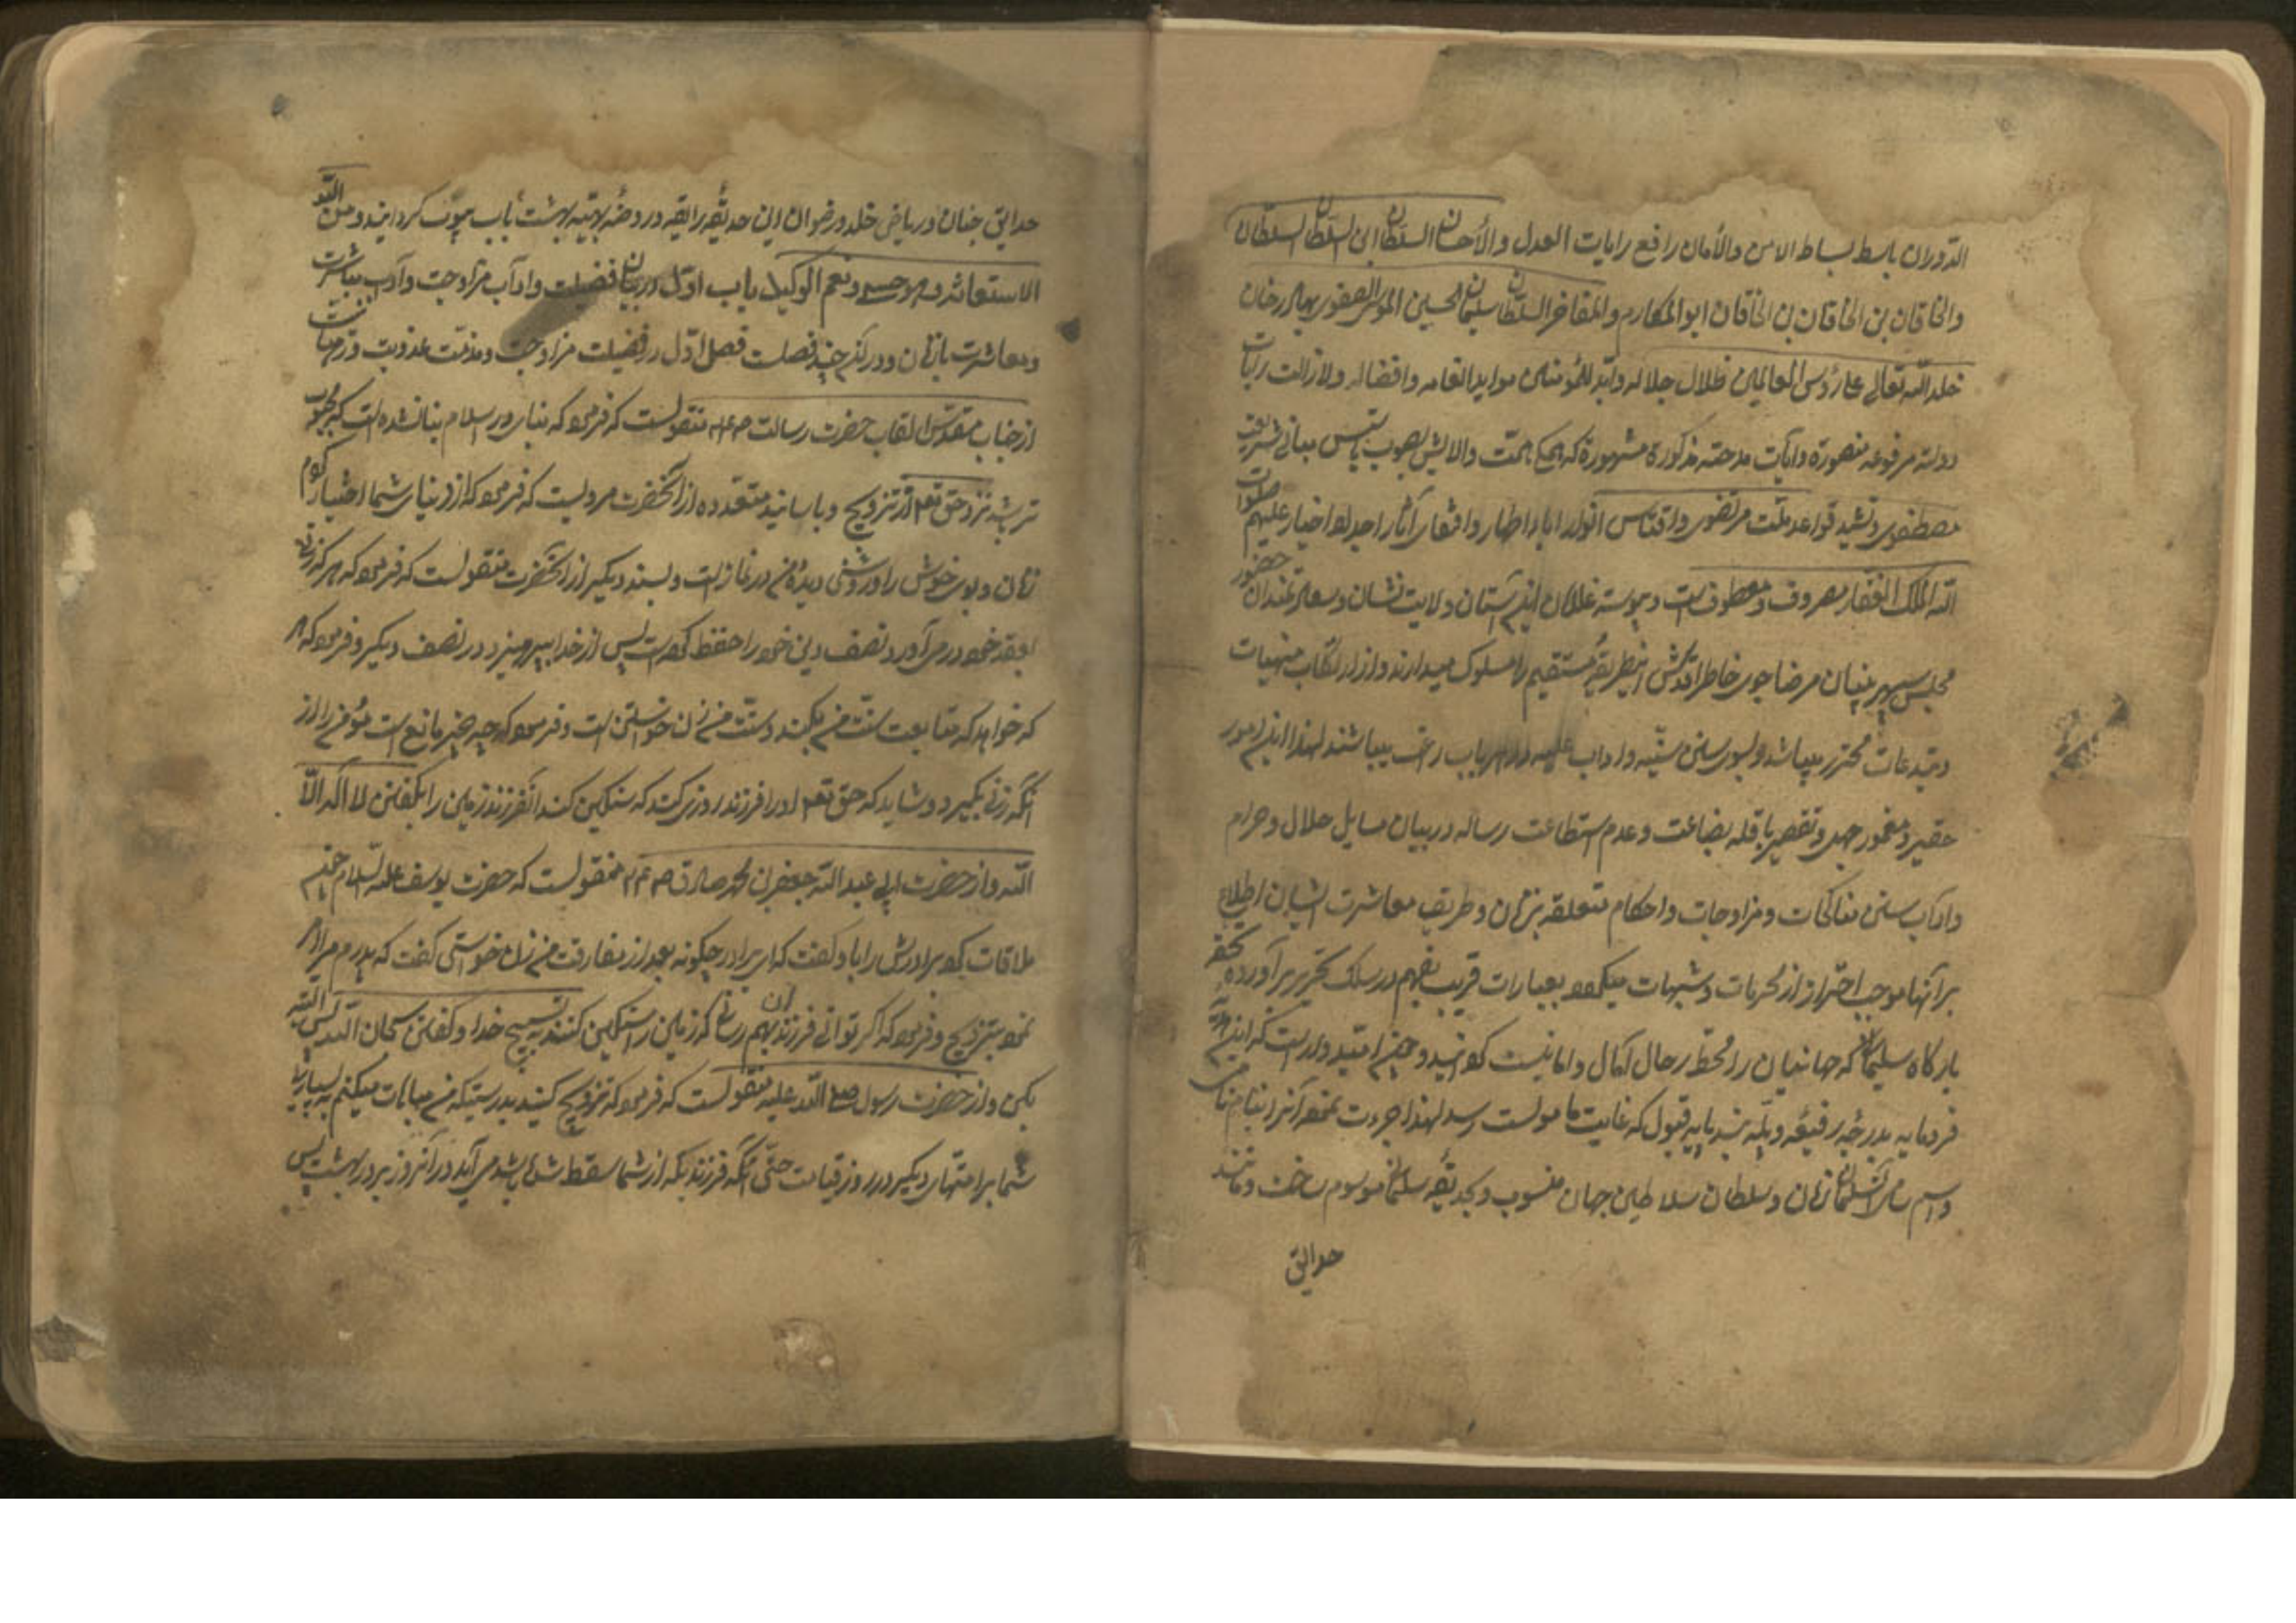 الدوران باسط بساط الامن والأمان رافع رایات العدل والأحسان السلطان ابن السلطان السلطان
والخاقان بن الخاقان بن الخاقان ابوالمکارم والمفاخر السلطان سلیمان الحسینی الموسوی الصفوی بهادرخان
خلد الله تعالی علی رؤس العالمین ظلال جلاله وابد للمؤمنین مواید انعامه وافضاله ولازالت رایات
دولته مرفوعه منصورة وایات مدحته مذکورة مشهورة که همکی همت والایش بصوب تأسیس مبانی شریعت
مصطفوی وتشید قواعد ملت مرتضوی واقتباس انوار اباء اطهار واقتفای آثار اجداد اخیار علیهم صلوات
الله الملک الغفار مصروف ومعطوفست و پیوسته غلامان این آستان ولایت نشان وسعادتمندان حضور
مجلس سپهر بنیان مرضا جوی خاطر اقدسش اینطریقهٔ مستقیم را مسلوک میدارند و از ارتکاب منهیات
ومبتدعات محترز میباشند وبسوی سنن سنیه واداب علیه در هر باب راغب میباشند لهذا این امور
حقیر ومغمور جهل وتقصیر با قله بضاعت وعدم استطاعت رساله در بیان مسایل حلال وحرام
وآداب سنن مناکحات ومزاوجات واحکام متعلقه بزنان وطریق معاشرت ایشان اطلاع
برآنها موجب احتراز از محرمات وشبهات میکردد بعبارات قریب بفهم در سلک تحریر برآورده تحفه
بارکاه سلیمان که جهانیان را محط رحال آمال وامانیست کردانید وحقیر امیدوار است که این
فرومایه بدرجهٔ رفیعه وپلهٔ بلند پایه قبول که غایت مأمولست رسد لهذا جرءت نموده آنرا بنام نامی
واسم سامی سلیمان زمان وسلطان سلاطین جهان منسوب وبحدیقهٔ سلیمانی موسوم ساخت ومانند
حدایق
حدایق جنان وریاض خلد ورضوان این حدیقهٔ رایقه در روضهٔ بهیه بهشت باب مبوب کردانید ومن الله
الاستعانة وهو حسبی ونعم الوکیل باب اول در بیان فضیلت وآداب مزاوجت وآداب مباشرت
ومعاشرت با زنان ودر آن چند فصلست فصل اول در فضیلت مزاوجت ومذمت عذوبت ورهبانیت
از جناب مقدس القاب حضرت رسالت منقولست که فرمود که بنای در اسلام بنا نشده است که محبوب
تر باشد نزد حق تعالی از تزویج وباسانید متعدده از آنحضرت مرویست که فرمود که از دنیای شما اختیار کردم
زنان وبوی خوش را وروشنی دیدهٔ من در نماز است وبسند دیکر از آنحضرت منقولست که فرمود که هر که زنی
بعقد خود در می آورد نصف دین خود را حفظ کرده است پس از خدا بپرهیزد در نصف دیکر وفرمود که هر
که خواهد که متابعت سنت من بکند وسنت من زن خواستن است وفرمود که چه چیز مانع است مؤمن را از
آنکه زنی بکیرد وشاید که حق تعالی اورا فرزند روزی کند که سنکین کند آنفرزند زمین را بکفتن لا اله الا
الله واز حضرت ابی عبدالله جعفر بن محمد صادق منقولست که حضرت یوسف علیه السلام چون
ملاقات کرد برادرش را با او کفت که ای برادر چکونه بعد از مفارقت من زن خواستی کفت که پدرم مرا امر
نمود بتزویج وفرمود که اکر توانی فرزندان بهم رسانی که زمین را سنکین کنند به تسبیح خدا وکفتن سبحان الله پس
بکن واز حضرت رسول صلی الله علیه منقولست که فرمود که تزویج کنید بدرستیکه من مباهات میکنم به بسیاری
شما بر امتهای دیکر در روز قیامت حتی آنکه فرزندیکه از شما سقط شده باشد می آید در آنروز بر در بهشت پس